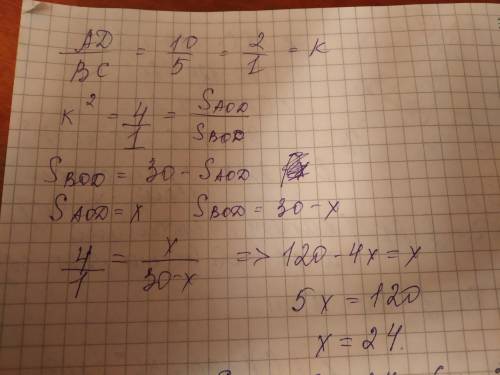 AD/BC = 10/5 = 2/1 = K
K² = 4/1 = S_AOD/S_BOD
S_BOD = 30 - S_AOD
S_AOD = x S_BOD = 30 - x
4/1 = x/30-x => 120 - 4x = x
5x = 120
x = 24.